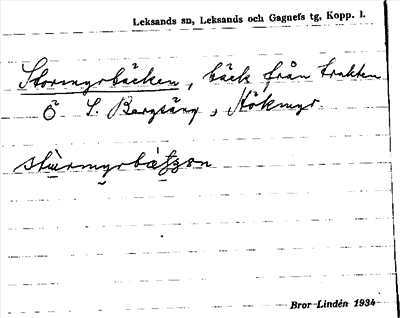 Leksands sn, Leksands och Gagnefs tg, Kopp. l.
Stormyrbäcken, bäck från trakten
Ö S. Bergsäng, Hökmyr.
Bror Lindén 1934